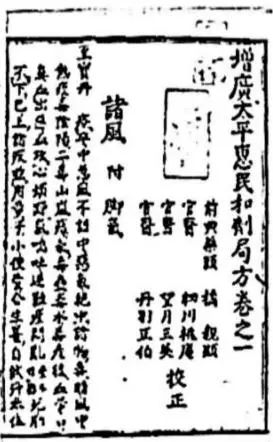 增廣太平惠民和劑局方卷之一
前典藥頭 橘 親顕
官醫 細川桃庵
官醫 望月三英 校正
官醫 丹羽正伯
諸風 附 脚氣
至寳丹 療卒中急風不語中惡氣絶中諸物毒暗風中
熱疫毒陰陽二毒山嵐瘴氣毒蠱毒水毒産後血暈口
鼻血出惡血攻心煩躁氣喘吐逆難産悶亂死胎
不下已上諸疾並用童子小便一合生薑自然汁三五